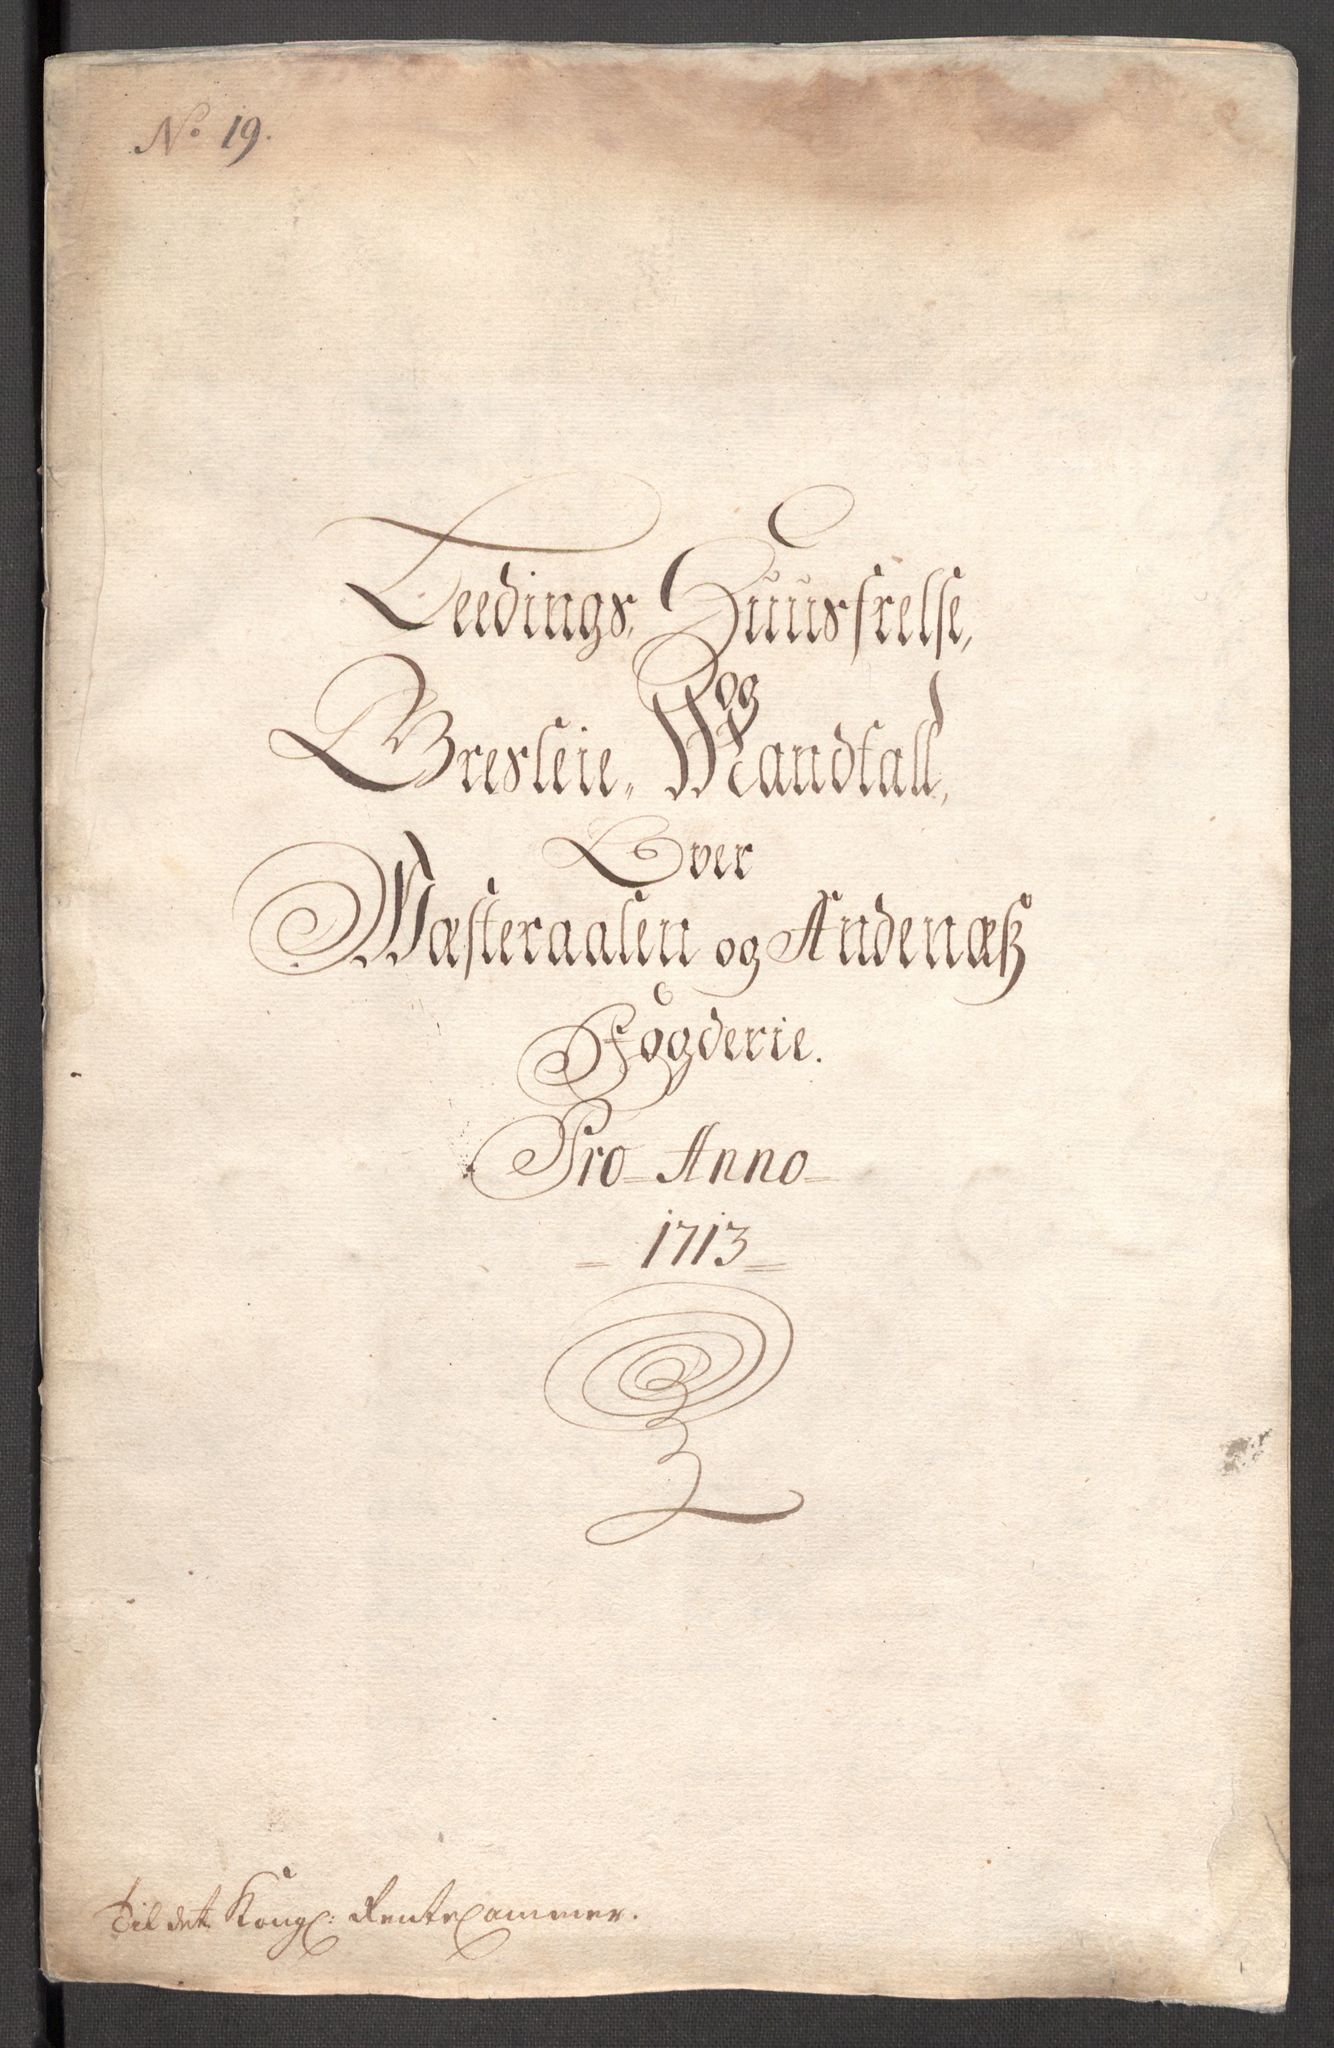 No 19.
Leedings, Huusfrelse,
og
Gresleie, Mandtall,
Over
Wæsteraalen og Andenæß
Fogderie.
Pro Anno
1713
Til dett Kongl: RenteCammer.